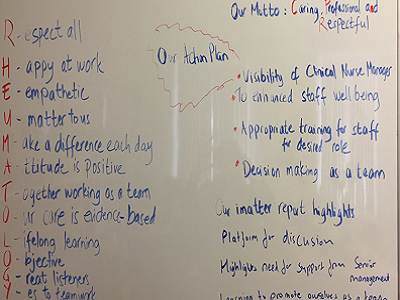 R - espect all
H - appy at work
E - empathetic
U - matter to us
M - ake a difference each day
A - ttitude is Positive
T - ogether working as a team
O - ur care is evidence-based
L - ifelong learning
O - bjective
G - reat listeners
Y - es to teamwork
Our Action Plan
Our Motto: Caring, Professional and
Respectful
• Visibility of Clinical Nurse Manager
• To enhanced staff well being
• Appropriate training for staff
for desired role
• Decision making as a team
Our imatter report highlights
Platform for discusion
Highlights need for support from Senior
management
Learning to promote ourselves as a team